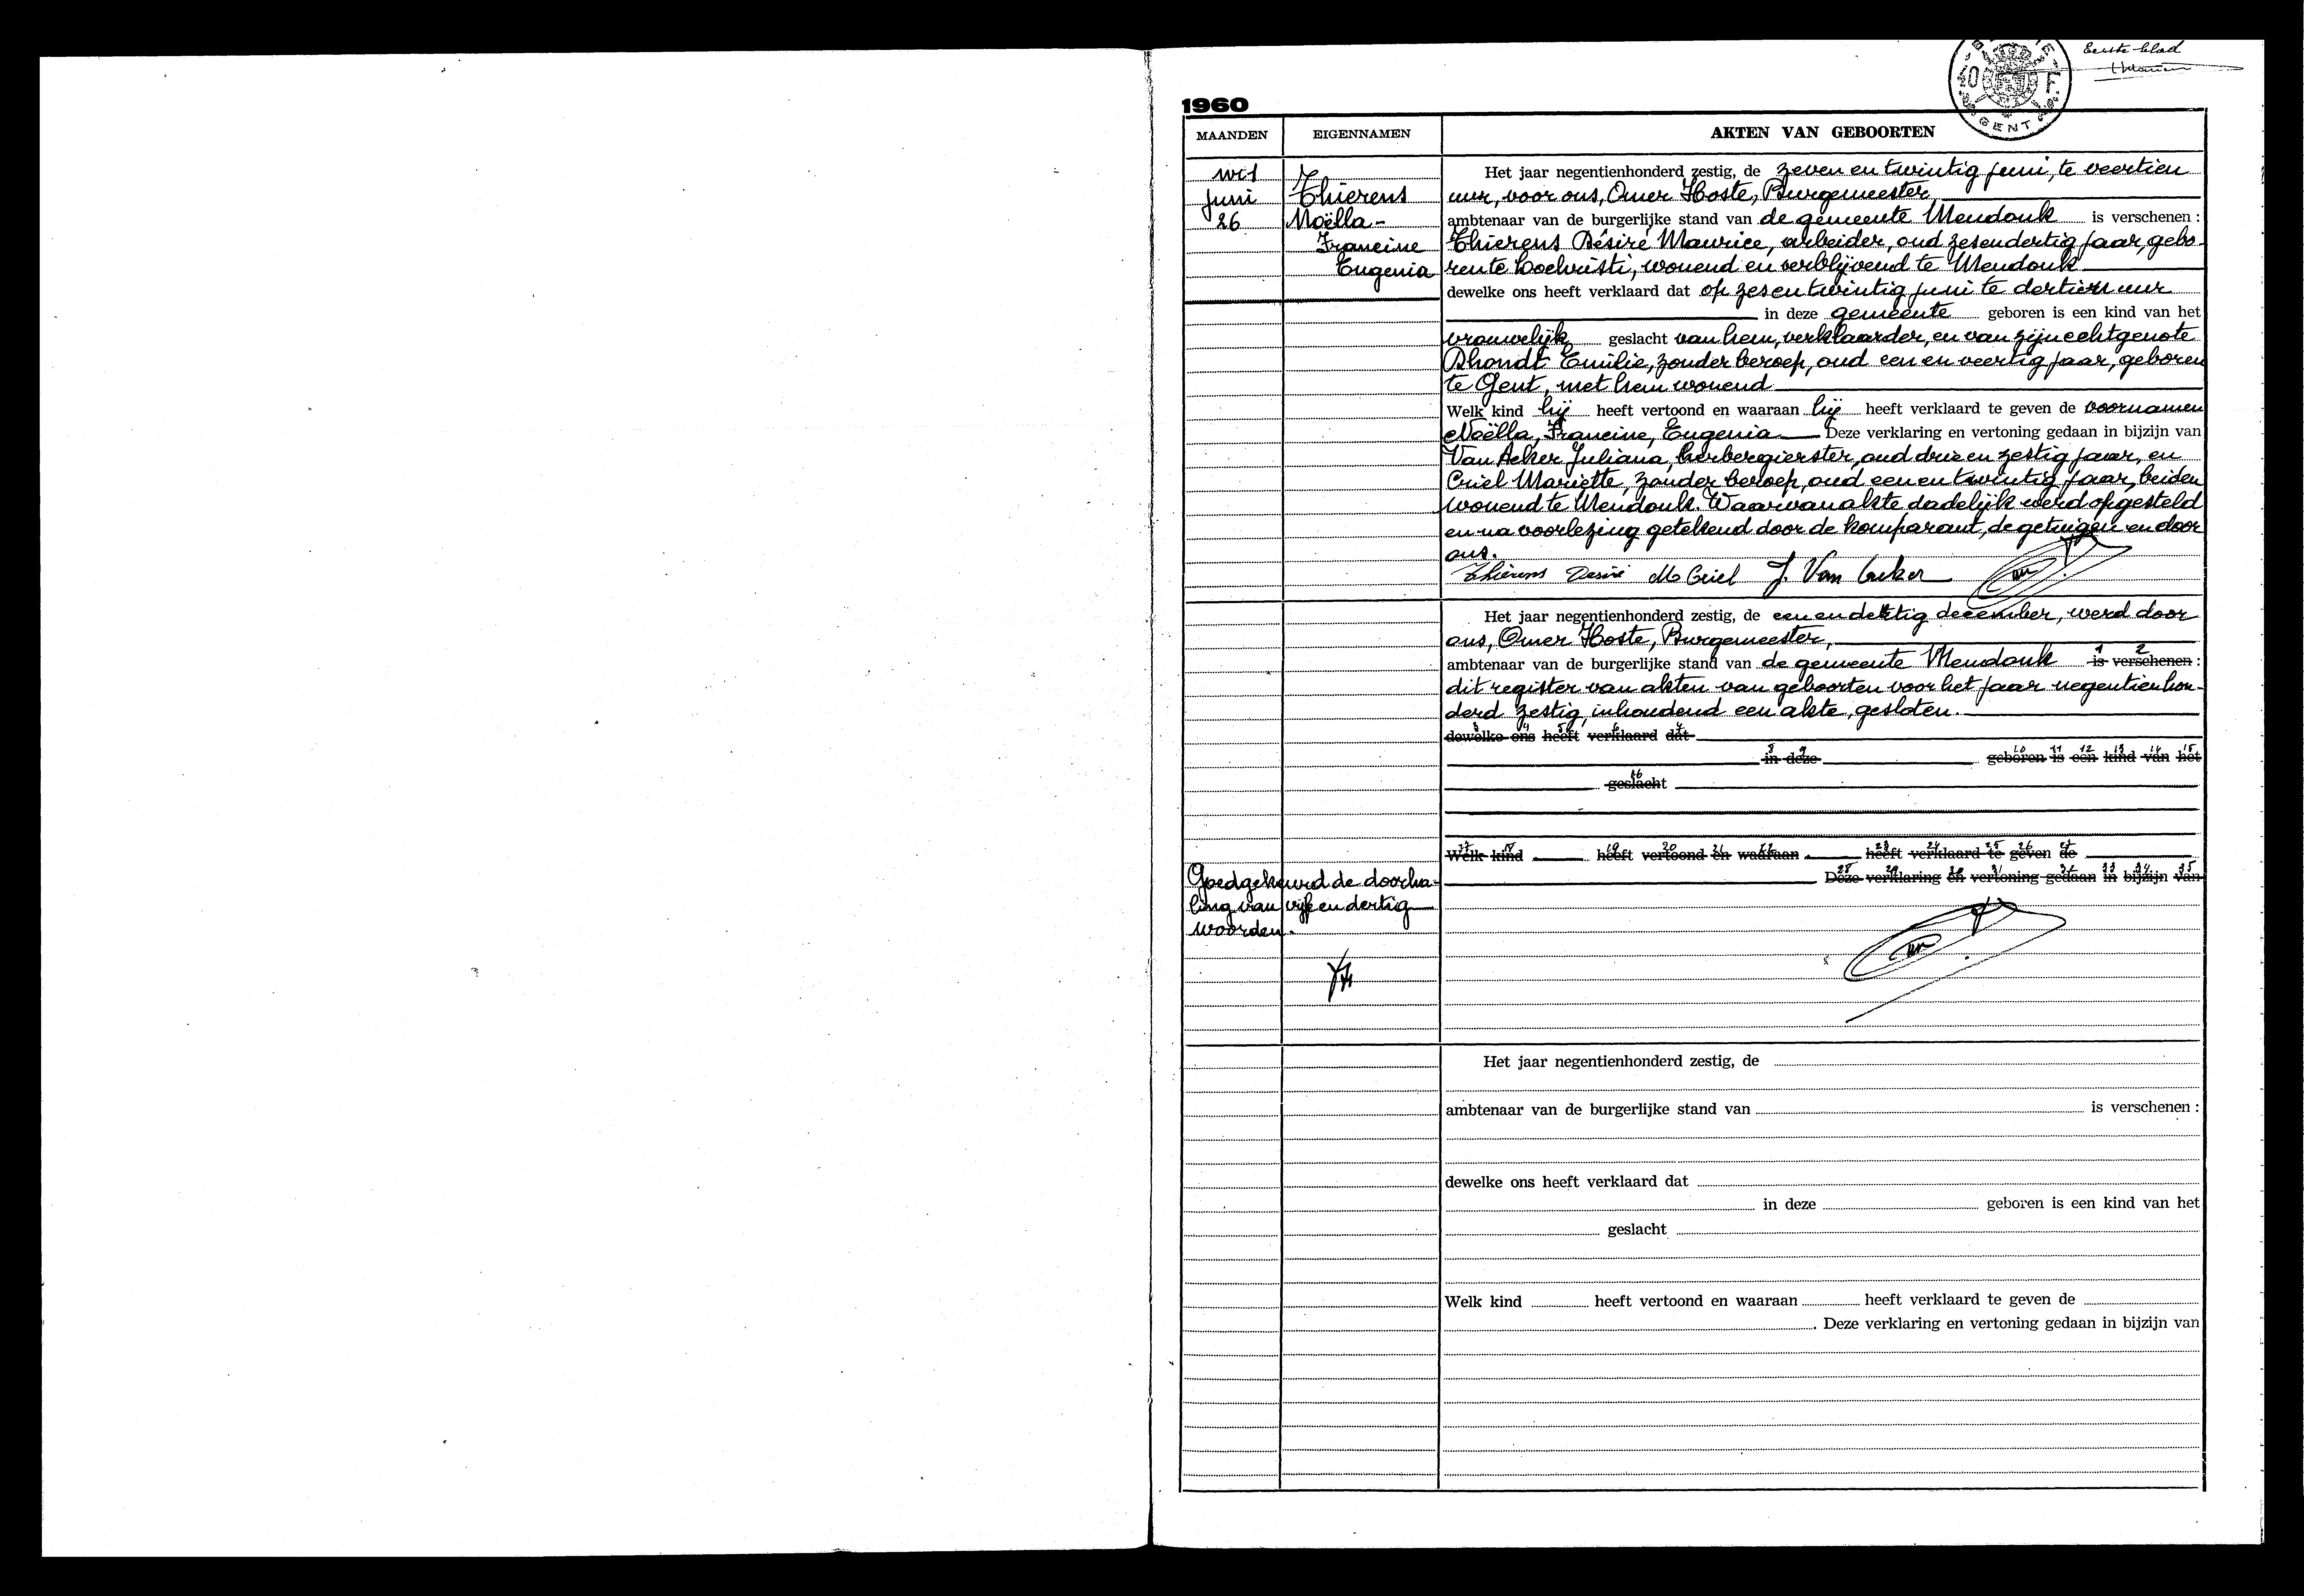 Eerste blad
40 F
GENT
1960
MAANDEN EIGENNAMEN AKTEN VAN GEBOORTEN
Juni
26
Thierens
Noëlla-
Francine
Eugenia
Het jaar negentienhonderd zestig, de zeven en twintig juni, te veertien
uur, voor ons, Omer Hoste, Burgemeester,
ambtenaar van de burgerlijke stand van de gemeente Mendonk is verschenen :
Thierens Désiré Maurice, arbeider, oud zesendertig jaar, gebo-
ren te Loochristi, wonend en verblijvend te Mendonk
dewelke ons heeft verklaard dat op zesentwintig juni te dertien uur
in deze gemeente geboren is een kind van het
vrouwelijk geslacht van hem, verklaarder, en van zijn echtgenote
Dhondt Emilie, zonder beroep, oud een en veertig jaar, geboren
te Gent, met hem wonend
Welk kind hij heeft vertoond en waaraan hij heeft verklaard te geven de voornamen
Noëlla, Francine, Eugenia Deze verklaring en vertoning gedaan in bijzijn van
Van Acker Juliana, herbergierster, oud drie en zestig jaar, en
Criel Mariette, zonder beroep, oud een en twintig jaar, beiden
wonend te Mendonk. Waarvan akte dadelijk werd opgesteld
en na voorlezing getekend door de komparant, de getuigen en door
ons.
Thierens Desiré M Criel J. Van Acker
Het jaar negentienhonderd zestig, de een en dertig december, werd door
ons, Omer Hoste, Burgemeester,
ambtenaar van de burgerlijke stand van de gemeente Mendonk is verschenen :
dit register van akten van geboorten voor het jaar negentienhon-
derd zestig, inhoudend een akte, gesloten.
dewelke ons heeft verklaard dat
in deze geboren is een kind van het
geslacht
Welk kind heeft vertoond en waaraan heeft verklaard te geven de
Deze verklaring en vertoning gedaan in bijzijn van
Goedgekeurd de doorha-
ling van vijf en dertig
woorden.
Het jaar negentienhonderd zestig, de
ambtenaar van de burgerlijke stand van is verschenen :
dewelke ons heeft verklaard dat
in deze geboren is een kind van het
geslacht
Welk kind heeft vertoond en waaraan heeft verklaard te geven de
. Deze verklaring en vertoning gedaan in bijzijn van